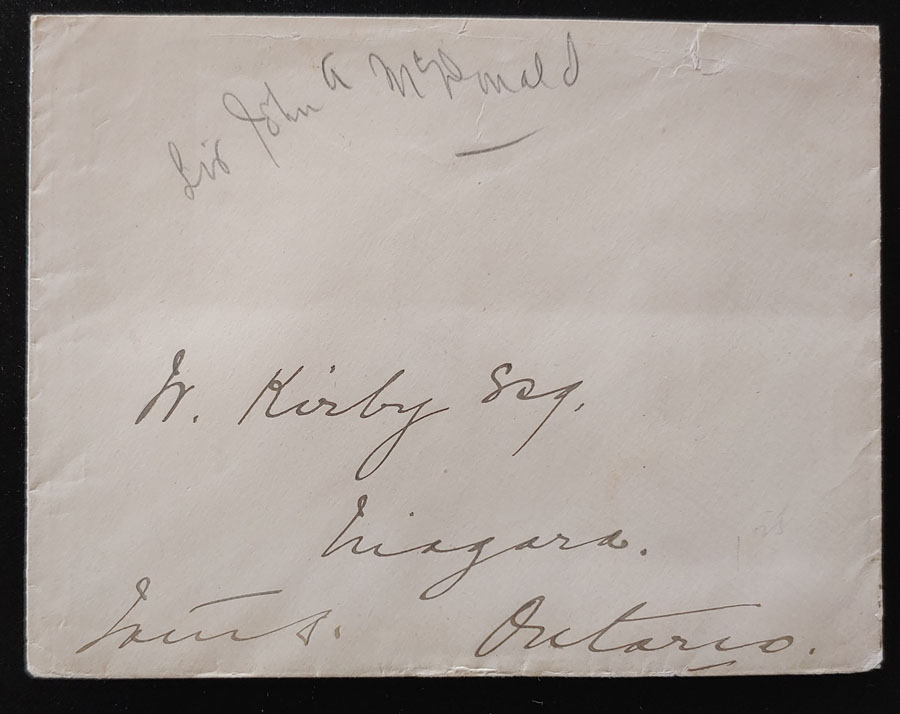 Sir John A McDonald
W. Kirby Esq.
Niagara.
Ontario.